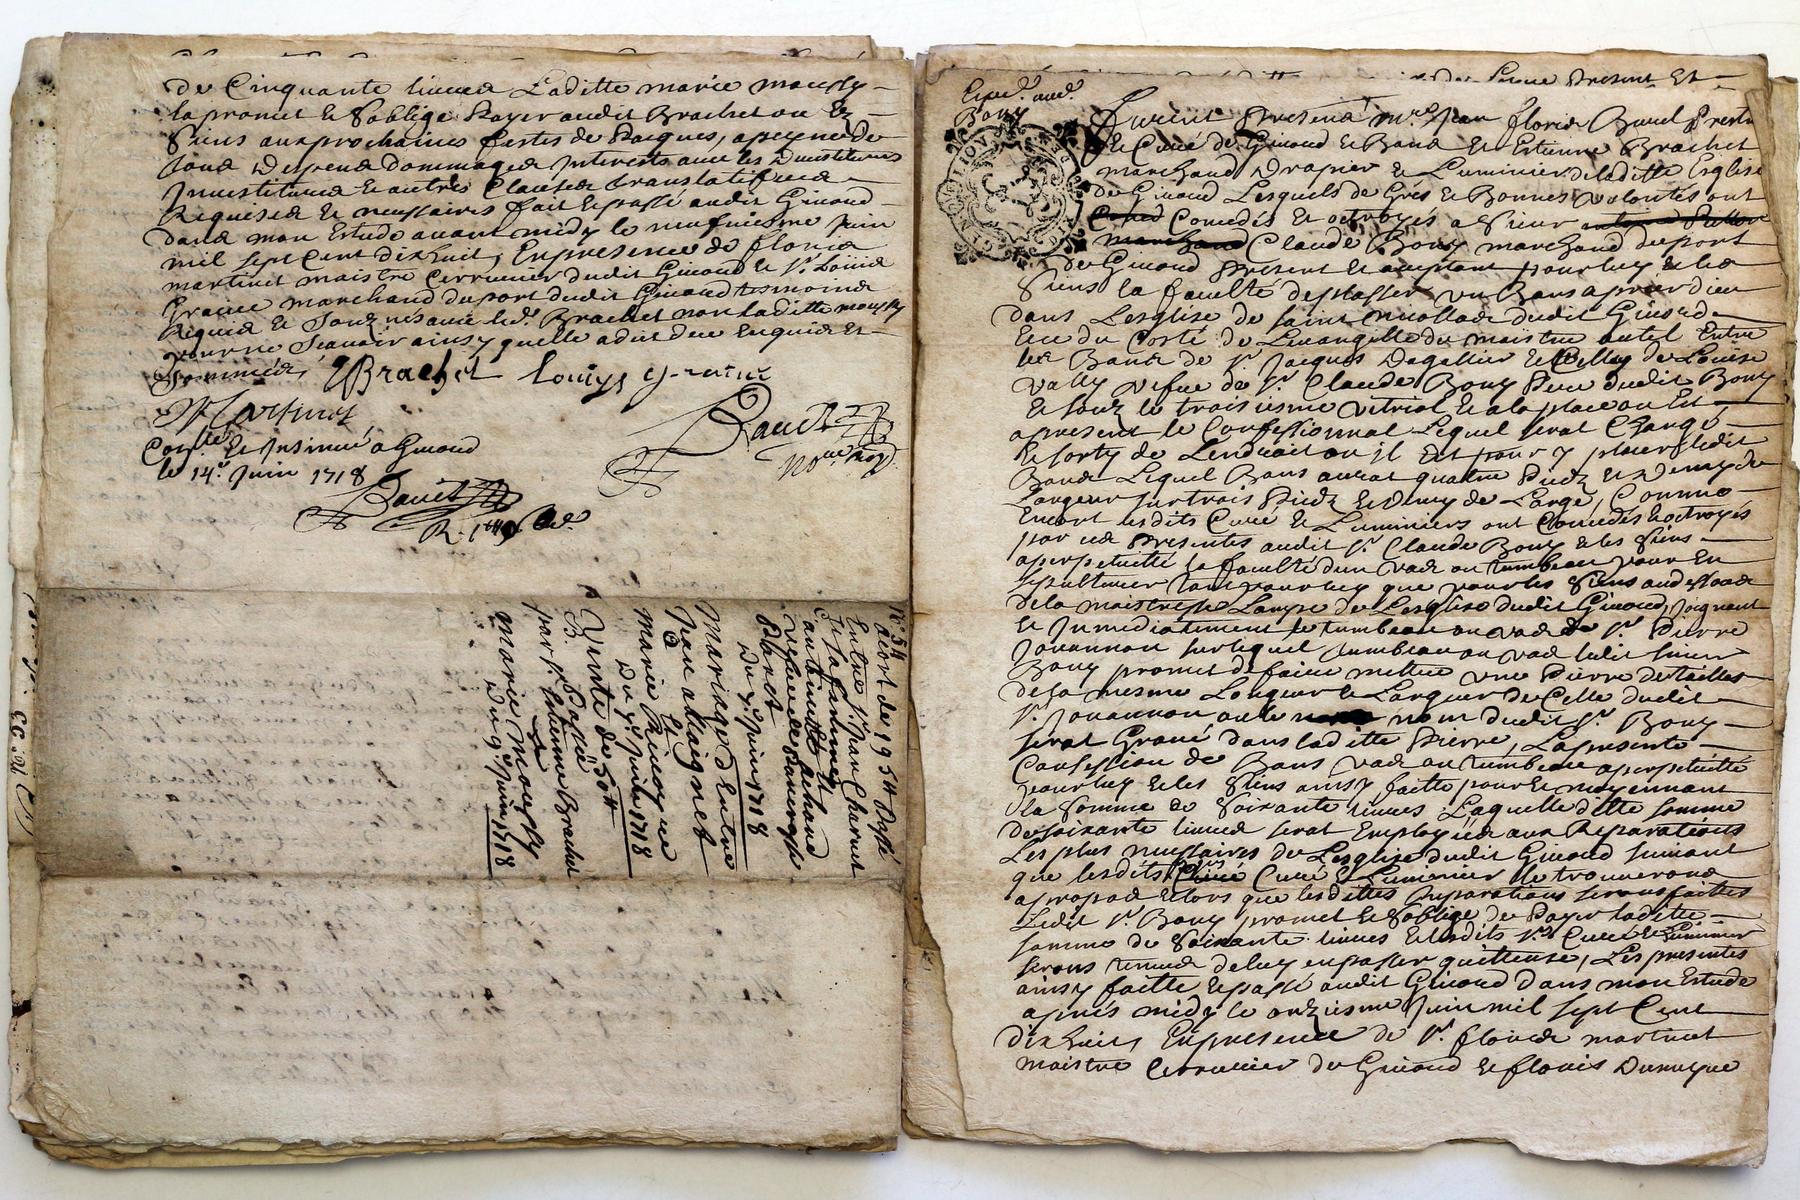 de Cinquante livres Laditte marie moussy
la promet & soblige Payer audit Brachet ou és
siens aux prochaines festes de Pacques, a peyne de
tous despens dommages Interests avec les
Investitures & autres Clauses translatifves
Requises & necessaires fait & passé audit Givord
dans mon Estude avant midy le neufviesme Juin
mil sept Cent dix huit, En presence de floris
martinet maistre Cerrurier dudit Givord & sr. Loüis
marchand du port dudit Givord tesmoins
Requis & Soubzsignés avec led. Brachet non laditte moussy
pour ne scavoir ainsy quelle a dit de ce Enquise Et
Sommée,
EBrachet Louys
Martinet
nore. Roy.
Conlé. Et Insinué a Givord
le 14e. Juin 1718
R.
N° 54
acort de 19 5tt Passé
Entre sr. Jean Charvet
Et la femme
antoinette achard
vefve de
du 7e. Juin 1718
Mariage Entre
Jean allaignet
Et
Marie
du 7e. Juin 1718
Vante de 50tt
B. Papié
par sr. Estienne Brachet
a
Marie Mousssy
du 9e. Juin 1718
Exped. aud.
Bony
Furent Presens mre. Jean floris Pretre
& Curé de Givord & Bans Et Estienne Brachet
marchand Drapier & Luminier de laditte Esglise
de Givord Lesquels de Gres & Bonnes volontés ont
Concedés Et octroyés a Sieur
marchand Claude Bony marchand du port
de Givord Present Et acceptant pour luy & les
Siens la faculté de placer un Banc a prier dieu
dans Lesglise de saint nicollas dudit Givord
Et ce du Costé de Levangille du maistre autel Entre
les Bancs de sr. Jacques Dagallier & Celluy de Louise
vally vefve de sr. Claude Bony Pere dudit Bony
& soubz le troisiesme vitrial & a la place ou Est
apresent le Confessionnal Lequel serat Changé
& sorty de Lendroit ou jl Est pour y placer ledit
Banc Lequel Banc aurat quatre Piedz & demy de
Longeur sur trois Piedz & demy de Large, Comme
Encort lesdits Curé & Luminiers ont Concedés & octroyés
par ces Presentes audit sr. Claude Bony & les Siens
a perpetuitté la faculté dun vas ou tumbeau pour En
sepulturer tant pour luy que pour les Siens au dessoubz
de la maistresse Lampe de Lesglise dudit Givord, Joignant
& Jmmediatement le tumbeau ou vas de sr. Pierre
Jouannon sur lequel tumbeau ou vas ledit sieur
Bony promet de faire mettre une Pierre de tailles
de la mesme Longeur & Largeur de Celle dudit
sr. Jouannon ou le nom dudit sr. Bony
serat Gravé dans laditte Pierre, La presente
Concession de Banc vas ou tumbeau a perpetuitté
pour luy & les Siens ainsy faitte pour & moyennant
la Somme de Soixante livres Laquelle ditte somme
de soixante livres serat Employée aux Reparations
Les plus necessaires de Lesglise dudit Givord suivant
que lesdits srs. Curé & Luminier le trouverons
a propos & lors que lesdittes Reparations serons faittes
Ledit sr. Bony promet & soblige de Payer laditte
somme de Soixante livres & lesdits srs. Curé & Luminier
serons tenus de luy en passer quittense, Les presentes
ainsy faitte & passé audit Givord Dans mon Estude
après midy le onziesme Juin mil sept Cent
dix huit, En presence de sr. floris martinet
maistre Cerrurier de Givord & floris Dumaque